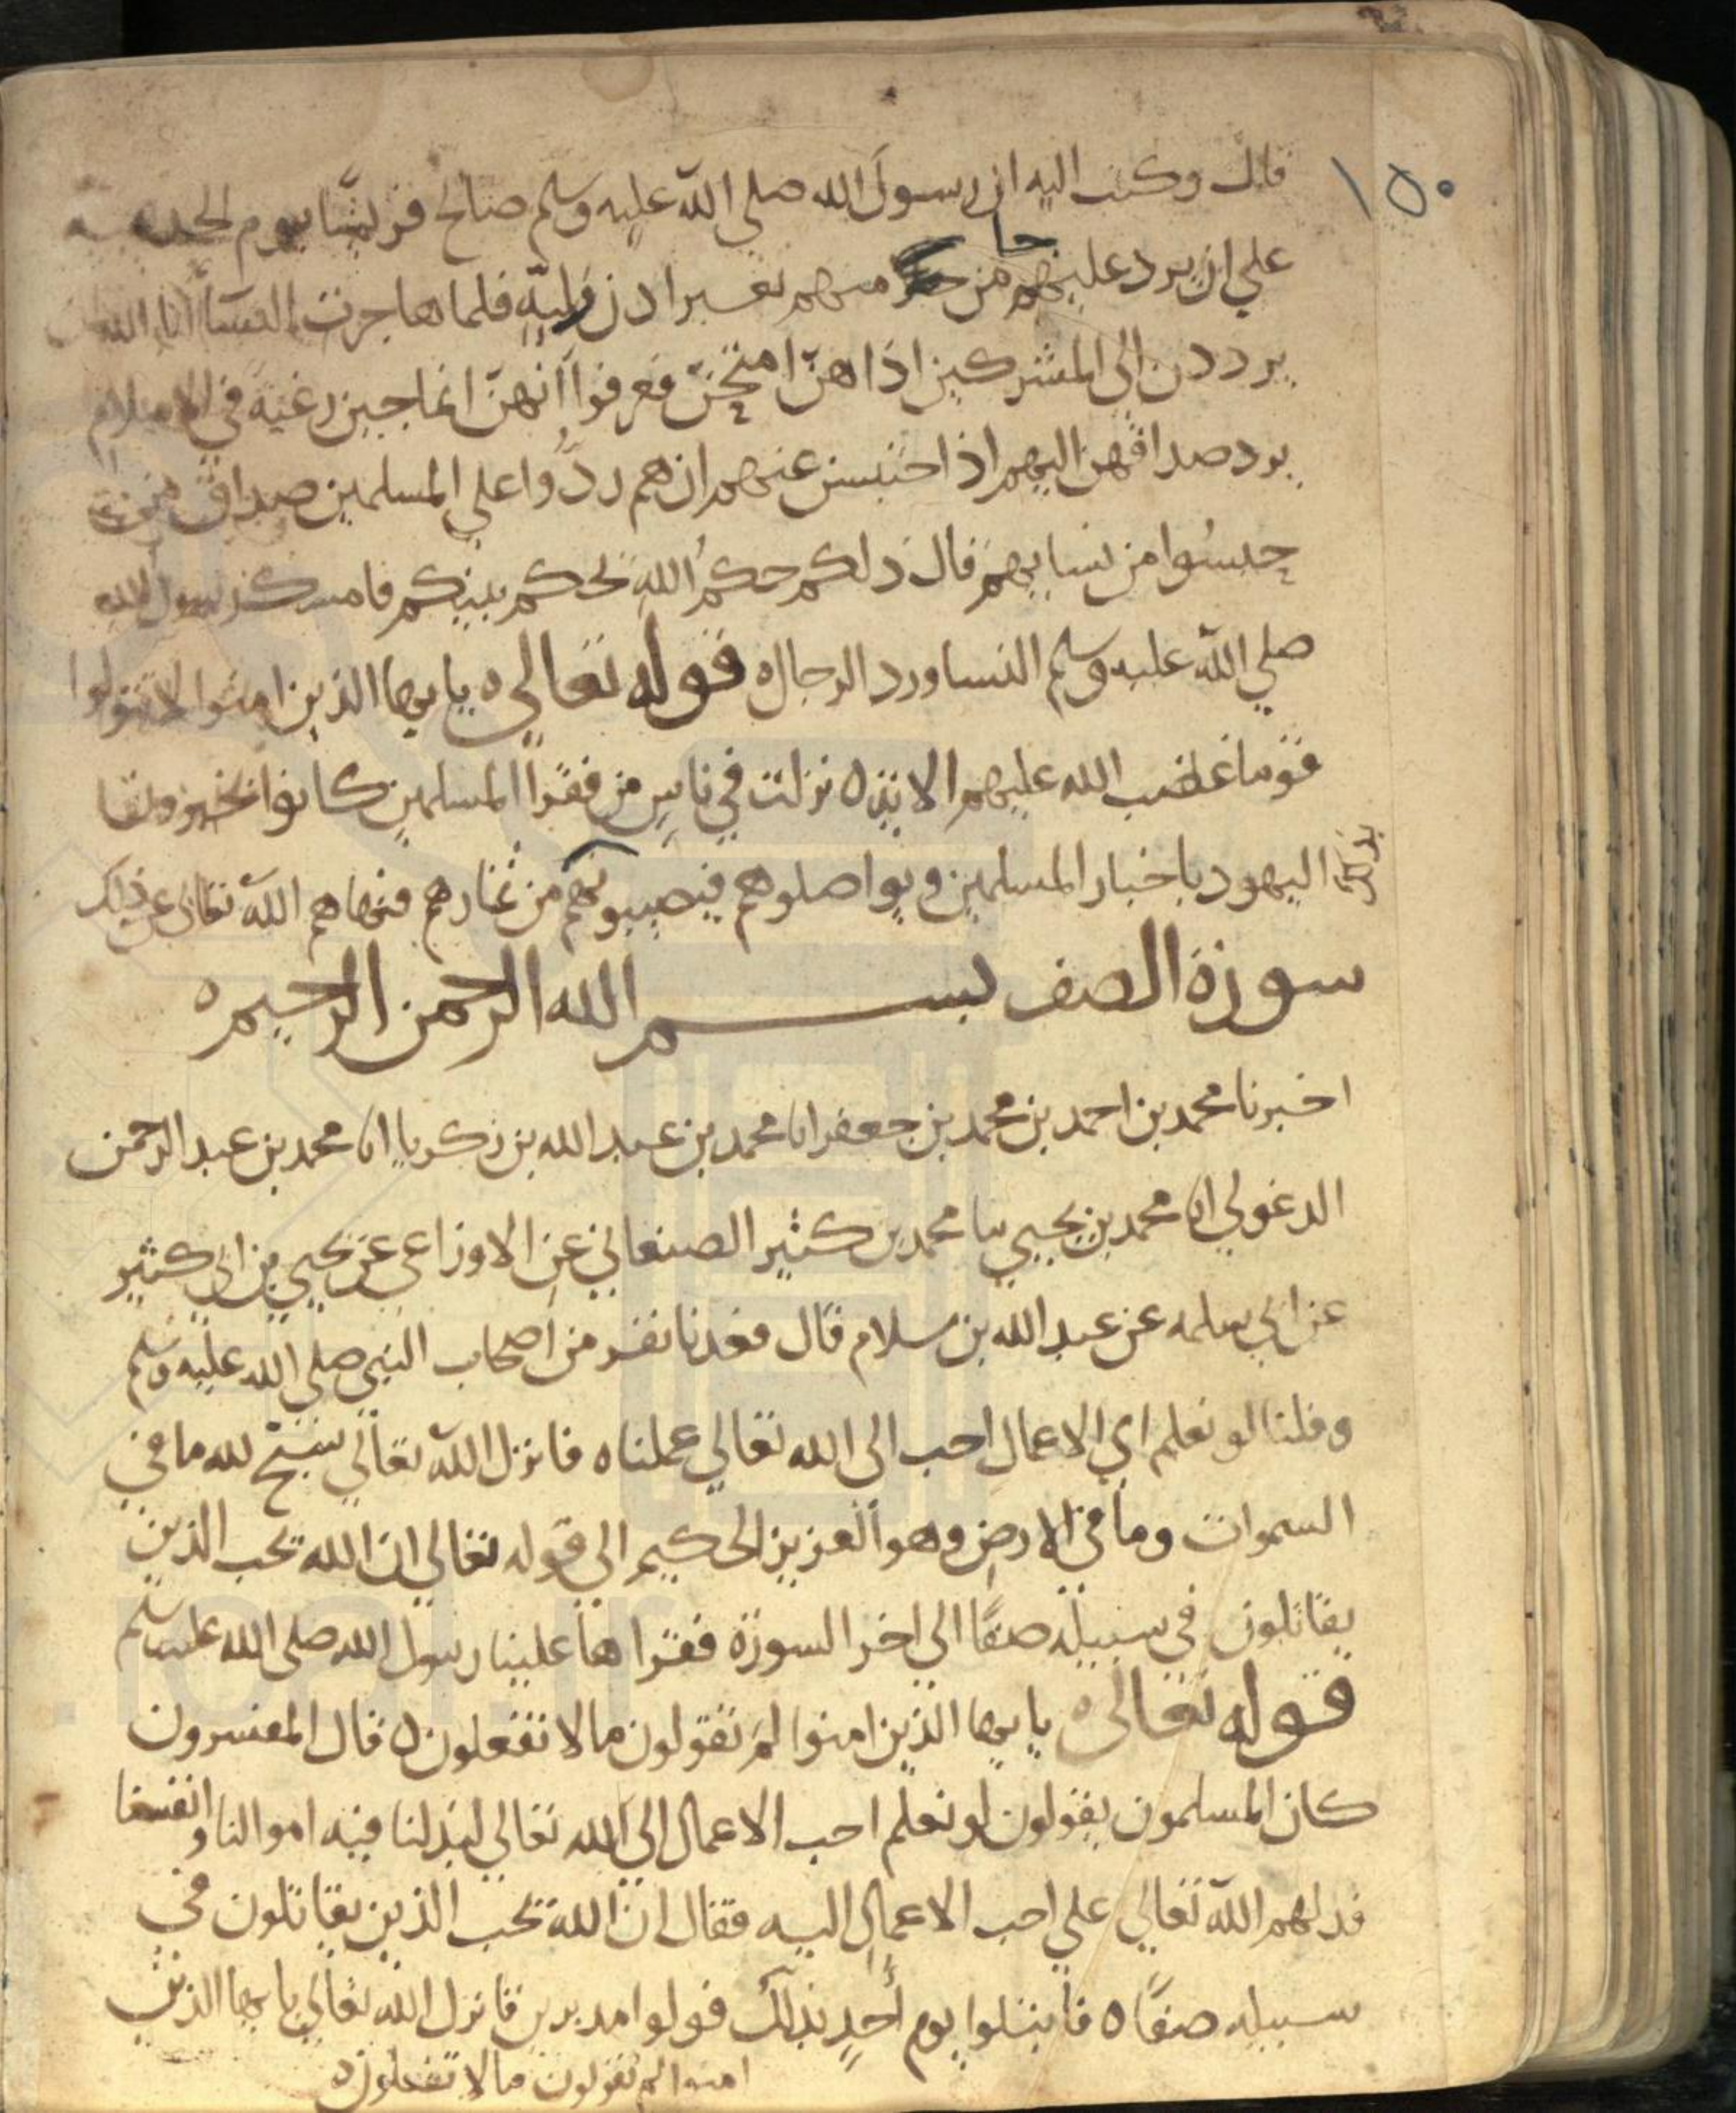 ١٥٠
قال وكتب اليه ان رسول الله صلى الله عليه وسلم صالح قريشا يوم الحديبيه
علي ان يرد عليهم من جا منهم بغير اذن وليه فلما هاجرت النسا ابا الله ان
يرددن الى المشركين اذا هنّ امتحِنّ فعرفوا انهنّ انما جين رغبة في الاسلام
برد صداقهن اليهم اذا احتبسن عنهم ان هم ردُّوا علي المسلمين صداق من
حبسُوا من نسايهم قال ذلكم حكمُ الله يحكم بينكم فامسك رسول الله
صلي الله عليه وسلم النسا ورد الرجال ه قوله تعالى ه يايها الذين امنوا لا تتولوا
قوما غضب الله عليهم الاية ه نزلت في ناس من فقرا المسلمين كانوا يخبرون
اليهود باخبار المسلمين ويواصلوهم فيصيبونهم من ثمارهم فنهاهم الله تعالى عن ذلك
سورة الصف بسم الله الرحمن الرحيم ه
اخبرنا محمد بن احمد بن محمد بن جعفر انا محمد بن عبد الله بن زكريا انا محمد بن عبد الرحمن
الدغولي انا محمد بن يحيي نا محمد بن كثير الصنعاني عن الاوزاعي عن يحيي بن ابي كثير
عن ابي سلمه عن عبد الله بن سلام قال قعدنا نفر من اصحاب النبي صلى الله عليه وسلم
وقلنا لو نعلم اي الاعمال احب الى الله تعالي عملناه فانزل الله تعالي سبّح لله ما في
السموات وما في الارض وهو العزيز الحكيم الي قوله تعالي ان الله يحب الذين
يقاتلون في سبيله صفًا الي اخر السورة فقراها علينا رسول الله صلى الله عليه وسلم
قوله تعالى ه يايها الذين امنوا لمَ تقولون مالا تفعلون ه قال المفسرون
كان المسلمون يقولون لو نعلم احب الاعمال الي الله تعالي لبذلنا فيه اموالنا وانفسنا
فدلهم الله تعالي علي احب الاعمال اليه فقال ان الله يحب الذين يقاتلون في
سبيله صفًا ه فابتلوا يوم أُحدٍ بذلك فولوا مدبرين فانزل الله تعالي يايها الذين
امنوا لم تقولون مالا تفعلون ه